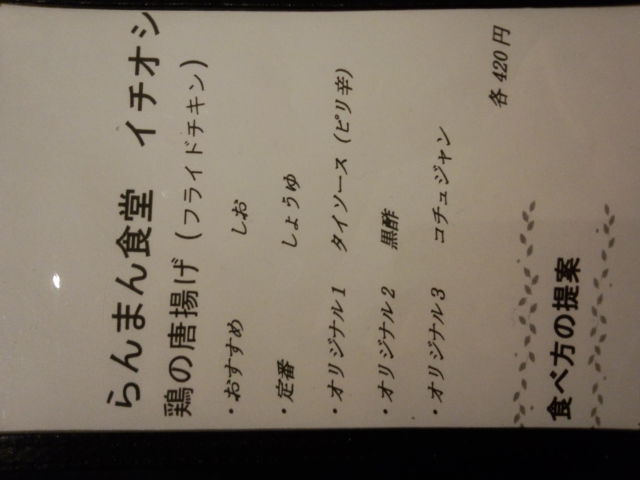 らんまん食堂 イチオシ
鶏の唐揚げ（フライドチキン）
・おすすめ しお
・定番 しょうゆ
・オリジナル1 タイソース（ピリ辛）
・オリジナル2 黒酢
・オリジナル3 コチュジャン
各420円
食べ方の提案